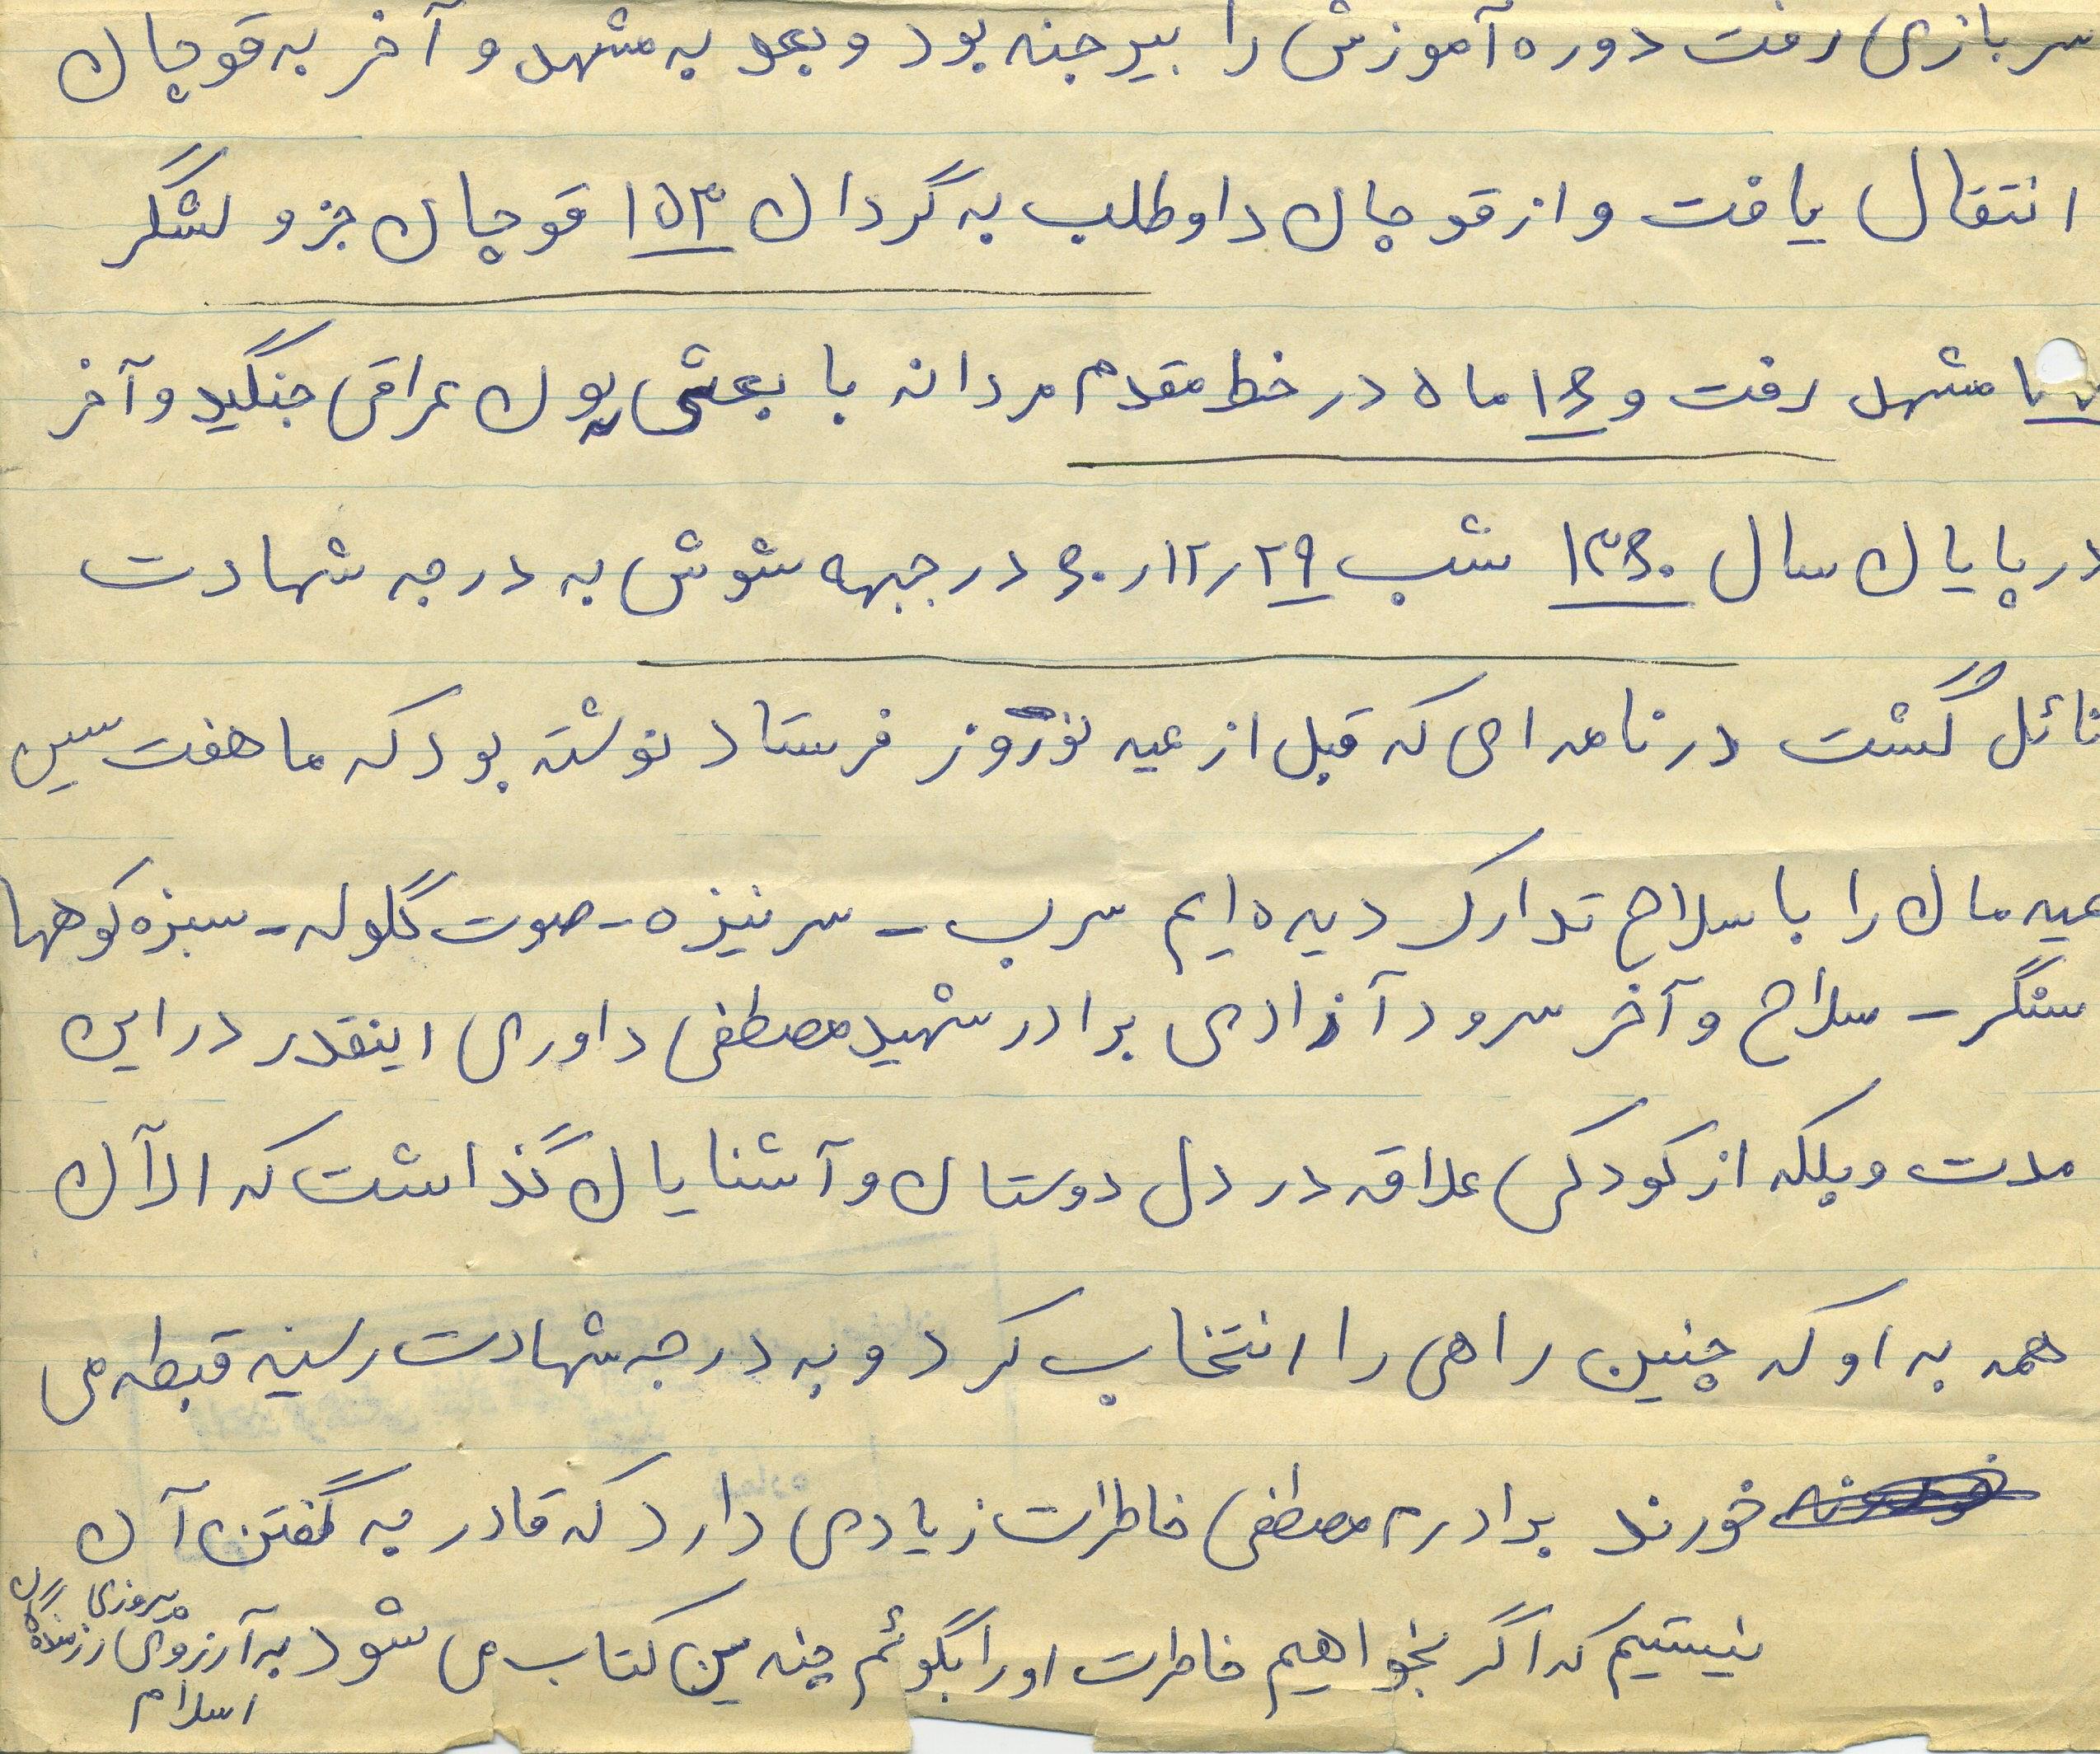 سربازی رفت دوره آموزش را بیرجند بود و بعد به مشهد و آخر به قوچان
انتقال یافت و از قوچان داوطلب به گردان ۱۵۳ قوچان جزو لشگر
۷۷ مشهد رفت و ۱۶ ماه در خط مقدم مردانه با بعثیون عراقی جنگید و آخر
در پایان سال ۱۳۶۰ شب ۶۰٫۱۲٫۲۹ در جبهه شوش به درجه شهادت
نائل گشت در نامه ای که قبل از عید نوروز فرستاد نوشته بود که ما هفت سین
عید مان را با سلاح تدارک دیده ایم سرب - سرنیزه - صوت گلوله - سبزه کوهها
سنگر - سلاح و آخر سرود آزادی برادر شهید مصطفی داوری اینقدر در این
مدت و بلکه از کودکی علاقه در دل دوستان و آشنایان گذاشت که الآن
همه به او که چنین راهی را انتخاب کرد و به درجه شهادت رسید قبطه می
خورند برادرم مصطفی خاطرات زیادی دارد که قادر به گفتن آن
نیستیم که اگر بخواهیم خاطرات او را بگوئم چندین کتاب می شود به آرزوی پیروزی رزمندگان
اسلام